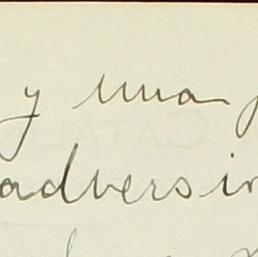 y una
adversin